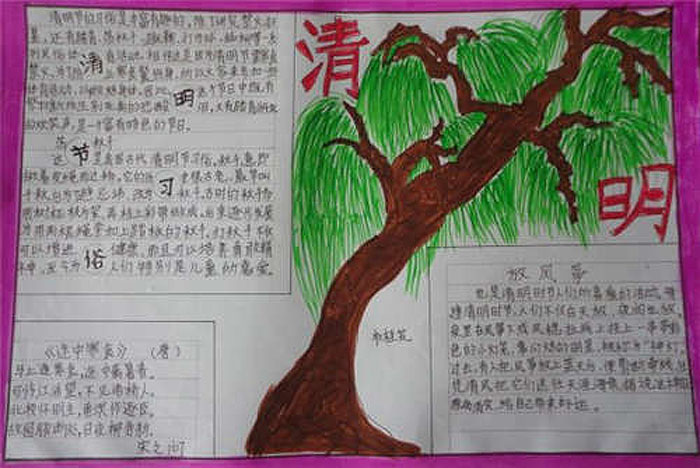 清明
清明节的习俗是丰富有趣的，除了讲究禁火扫
墓，还有踏青、荡秋千、蹴鞠、打马球、插柳等一系
列风俗体育活动。相传这是因为清明节要寒食
禁火，为了 寒食冷餐伤身，所以大家来参加一些
体育活动，以锻炼身体。因此，这个节日中既有
祭扫新坟生别死离的悲酸泪，又有踏青游玩
的欢笑声，是一个富有特色的节日。
荡秋千
这是我国古代清明节习俗。秋千，意即
揪着皮绳而迁移。它的历史很古老，最早叫
千秋，后为了避忌讳，改为秋千。古时的秋千多
用树桠枝为架，再栓上彩带做成。后来逐步发展
为用两根绳索加上踏板的秋千。打秋千不仅
可以增进健康，而且可以培养勇敢精
神，至今为人们特别是儿童的喜爱。
清明节习俗
《途中寒食》（唐）
马上逢寒食，途中属暮春。
可怜江浦望，不见洛桥人。
北极怀明主，南溟作逐臣。
故园肠断处，日夜柳条新。
宋之问
放风筝
也是清明时节人们所喜爱的活动。每
逢清明时节，人们不仅白天放，夜间也放。
夜里在风筝下或风稳拉线上挂上一串串彩
色的小灯笼，象闪烁的明星，被称为“神灯”。
过去，有人把风筝放上蓝天后，便剪断牵线，任
凭清风把它们送往天涯海角，据说这样能
除病消灾，给自己带来好运。